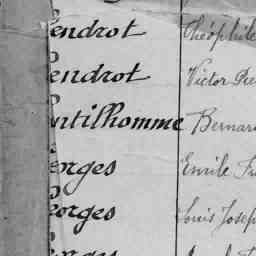 endrot Théophile
endrot Victor
ntilhomme Bernar
orges Emile
eorges Louis Josep
orges